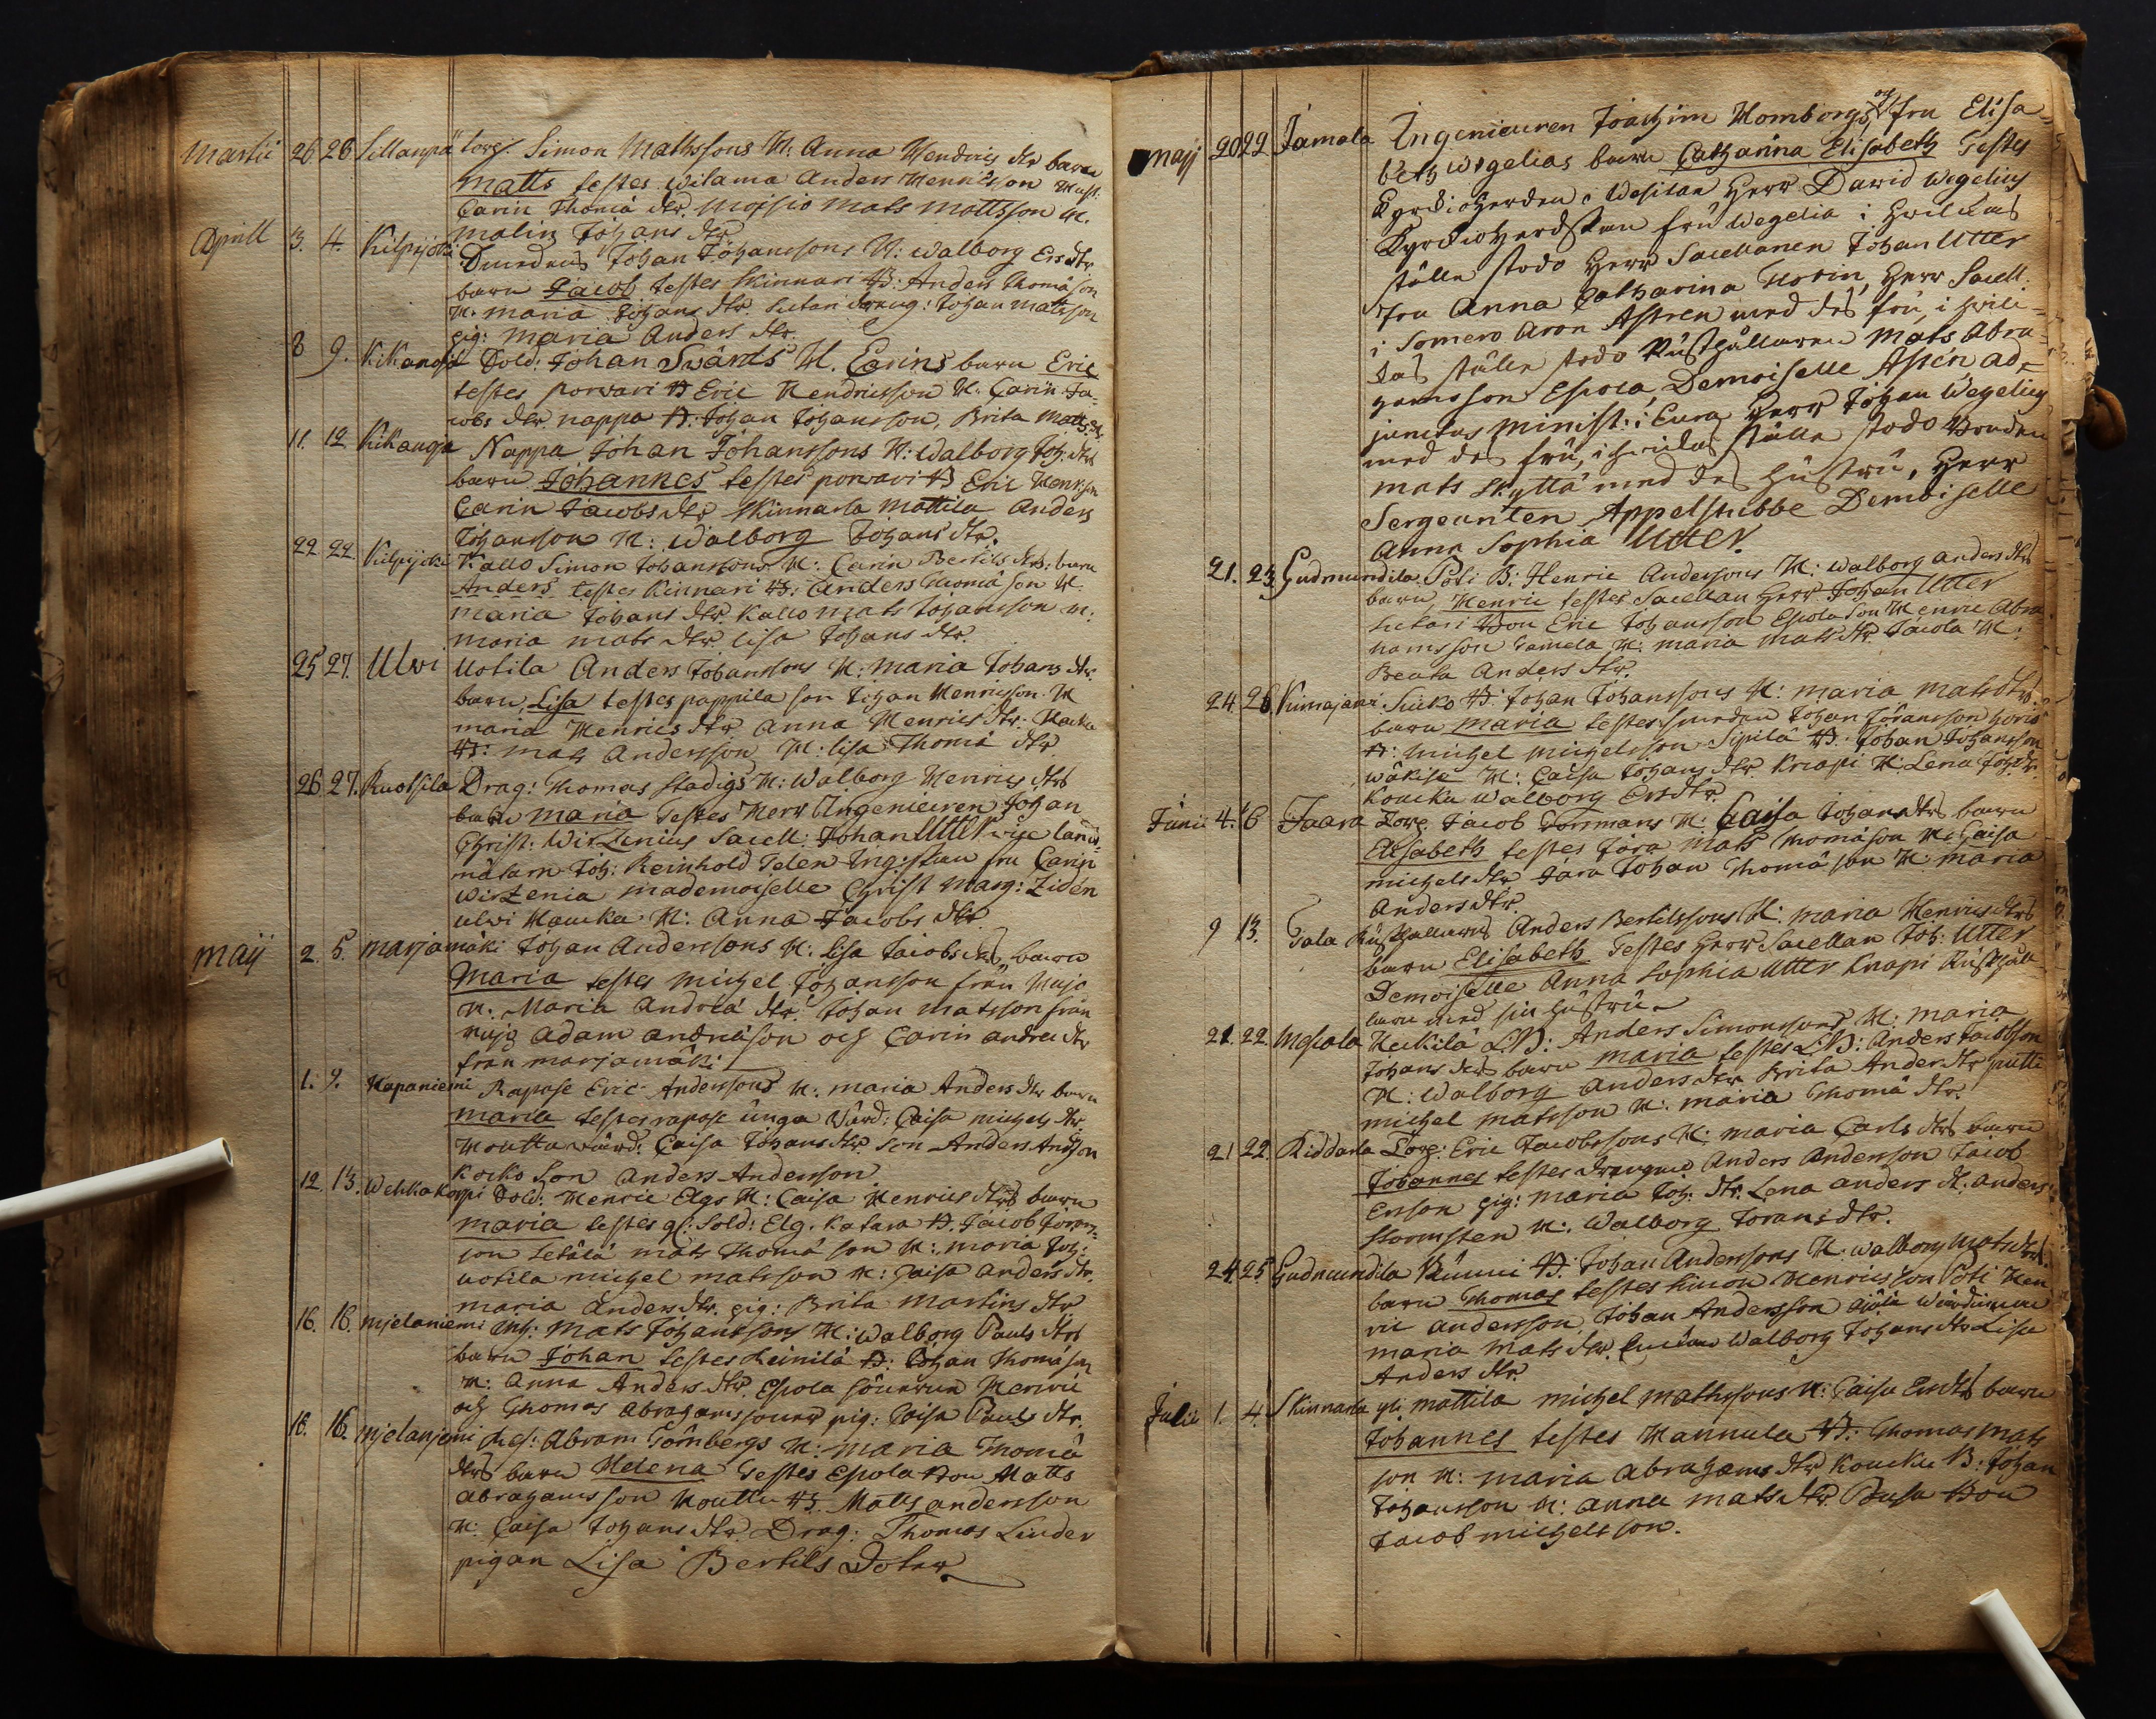 Martii 26 26 Sillanpä torp. Simon Mathssons H: Anna Hendrics dtr barn
Matts testes Wilama Anders Henricsson
Carin Thomæ dtr. Moisio Mats Mattsson H.
Malin Johans dtr
Aprill 3. 4. Kilpijoki Smedens Johan Johanssons H: Walborg Ersdtr
barn Jacob testes Kinnari B: Anders Thomason
H. Maria Johans dtr. dräng: Johan Matsson
pig: Maria Anders dtr.
8 9. Kikanoja Sold: Johan Swärds H. Carins barn Eric
testes porwari B Eric Hendricsson H: Carin Ja-
cobs dtr nappa B. Johan Johansson, Brita Matts dtr
11. 12 Kikanoja Nappa Johan Johanssons H: Walborg Joh: dtrs
barn Johannes testes porwari B Eric Henrson
Carin Jacobs dtr Skinnarla Mattila Anders
Johansson H: Walborg Johans dtr.
22 22 Kilpijoki Kallo Simon Johanssons H: Carin Bertils dtrs: barn
Anders testes Kinnari B: Anders Thomæson H
Maria Johans dtr Kallo Mats Johansson H.
Maria Mats dtr Lisa Johans dtr.
25 27. Ulwi Uotila Anders Johanssons H: Maria Johans dtr.
barn, Lisa testes pappila son Johan Henricsson H
Maria Henrics dtr Anna Henrics dtr. Haucka
B: Mats Andersson H: Lisa Thomæ dtr
26 27. Ruotsila Drag: Thomas Stadigs H: Walborg Henrics dtrs
barn Maria Testes Herr Ingenieuren Johan
Christ: Wirzenius Sacell: Johan Utter vice lands-
mätarn Joh: Reinhold Telen Ing:skan fru Carin
Wirzenia Mademoiselle Christ Marg: Zidén
ulwi Haucka H: Anna Jacobs dtr
Maij 2. 5. Marjamäki Johan Anderssons H: Lisa Jacobs dtrs barn
Maria testes Michel Johansson från Nujo
H. Maria Andreæ dtr. Johan Matsson från
Nujo Adam Andreæson och Carin Andreæ dtr
från Marjamäki
1. 9. Kapaniemi Rapase Eric Anderssons H: Maria Anders dtr barn
Maria testes rapase unga Wärd: Caisa Michels dtr.
Mouttu wärd: Caisa Johans dtr. Son Anders Andson
Kocko Son Anders Andersson.
12 13. Wehkakorpi Sold: Henric Elgs H: Caisa Henrics dtrs barn
Maria testes gl: Sold: Elg. Katara B. Jacob Jörans-
son Setälä Mats Thomæson H: Maria Joh:
uotila Michel Matsson H: Caisa Anders dtr.
Maria Anders dtr. pig: Brita Martins dtr
16. 16. Mjelaniemi Inh: Mats Johanssons H: Walborg Pauls dtrs
barn Johan testes Heinilä B: Johan Thomæson
H: Anna Anders dtr Espola sönerna Henric
och Thomas Abrahamssoner pig: Caisa Pauls dtr.
16. 16. Mjelanjemi Res: Abram Törnbergs H: Maria Thomæ
dtrs barn Helena Testes Espola Bon Matts
Abrahamsson Mouttu B. Matts Andersson
H: Caisa Johans dtr Drag: Thomas Linder
pigan Lisa Bertils Doter
Maij 20 22 Jamala Ingenieuren Joachim Homborgs och fru Elisa-
beth Wegelias barn Catharina Elisabeth Testes
Kyrckioherden i Wesilax Herr David Wegelius
Kyrckioherdskan fru Wegelia i hwilckas
ställe stodo Herr Sacellanen Johan Utter
Fru Anna Catharina Florin, Herr Sacell:
i Somero Aron Astren med des fru, i hwilc-
kas ställe stodo Rusthållaren Mats Abra-
hamsson Espola, Demoiselle Astén ad-
junctus Minist: i Eura Herr Johan Wegelius
med des fru, i hwilckas ställe stodo Bonden
Mats Skyttä med des hustru, Herr
Sergeanten Appelstubbe Demoiselle
Anna Sophia Utter.
21. 23 Gudmundila Poti B: Henric Anderssons H: Walborg Anders dtrs
barn, Henric testes Sacellan Herr Johan Utter
Bon Eric Johansson Espola Son Henric Abra
hamsson Jamala H: Maria Mats dtr Jacola H:
Beata Anders dtr.
24. 26 Kimajani Sucko B: Johan Johanssons H: Maria Mats dtrs
barn Maria testes smeden Johan Jöransson
B: Michel Michelsson Sipilä B: Johan Johansson
wäkise H: Caisa Johans dtr Knapi H: Lena Joh: dtr
Koucku Walborg Ersdtr.
Junii 4. 6 Jaara Torp. Jacob Formans H: Caisa Johans dtrs barn
Elisabeth testes Jara Mats Thomæson H: Caisa
Michels dtr Jara Johan Thomæson H: Maria
Anders dtr
9 13. Tala Rusthållarens Anders Bertilssons H: Maria Henrics dtrs
barn Elisabeth Testes Herr Sacellan Joh: Utter
Demoiselle Anna Sophia Utter Knapi Rusthåll-
laren med sin hustru.
21. 22 Mesola Heikilä L.B: Anders Simonssons H: Maria
Johans dtrs barn Maria testes L.B: Anders Jacobsson
H: Walborg Anders dtr Brita Anders dtr putti
Michel Matsson H: Maria Thomæ dtr.
21 22. Kiddarla Torp: Eric Jacobssons H: Maria Carls dtrs barn
Johannes testes drengarne Anders Andersson Jacob
Ersson pig: Maria Joh: dtr. Lena Anders d. Anders
Stormsten H: Walborg Jörans dtr.
24 25 Gudmundila Kunni B: Johan Anderssons H: Walborg Mats dtrs
barn Thomas testes Simon Henricsson Poti Hen
ric Andersson, Johan Andersson Wärdinnan
Maria Mats dtr. Walborg Johans dtr Lisa
Anders dtr
Julii 1. 4. Skinnarla yli Mattila Michel Mathssons H: Caisa Ersdtrs barn
Johannes testes Hannula B: Thomas Mats
son H: Maria Abrahams dtr Koucku B: Johan
Johansson H: Anna Mats dtr. Pusa Bon
Jacob Michelsson.